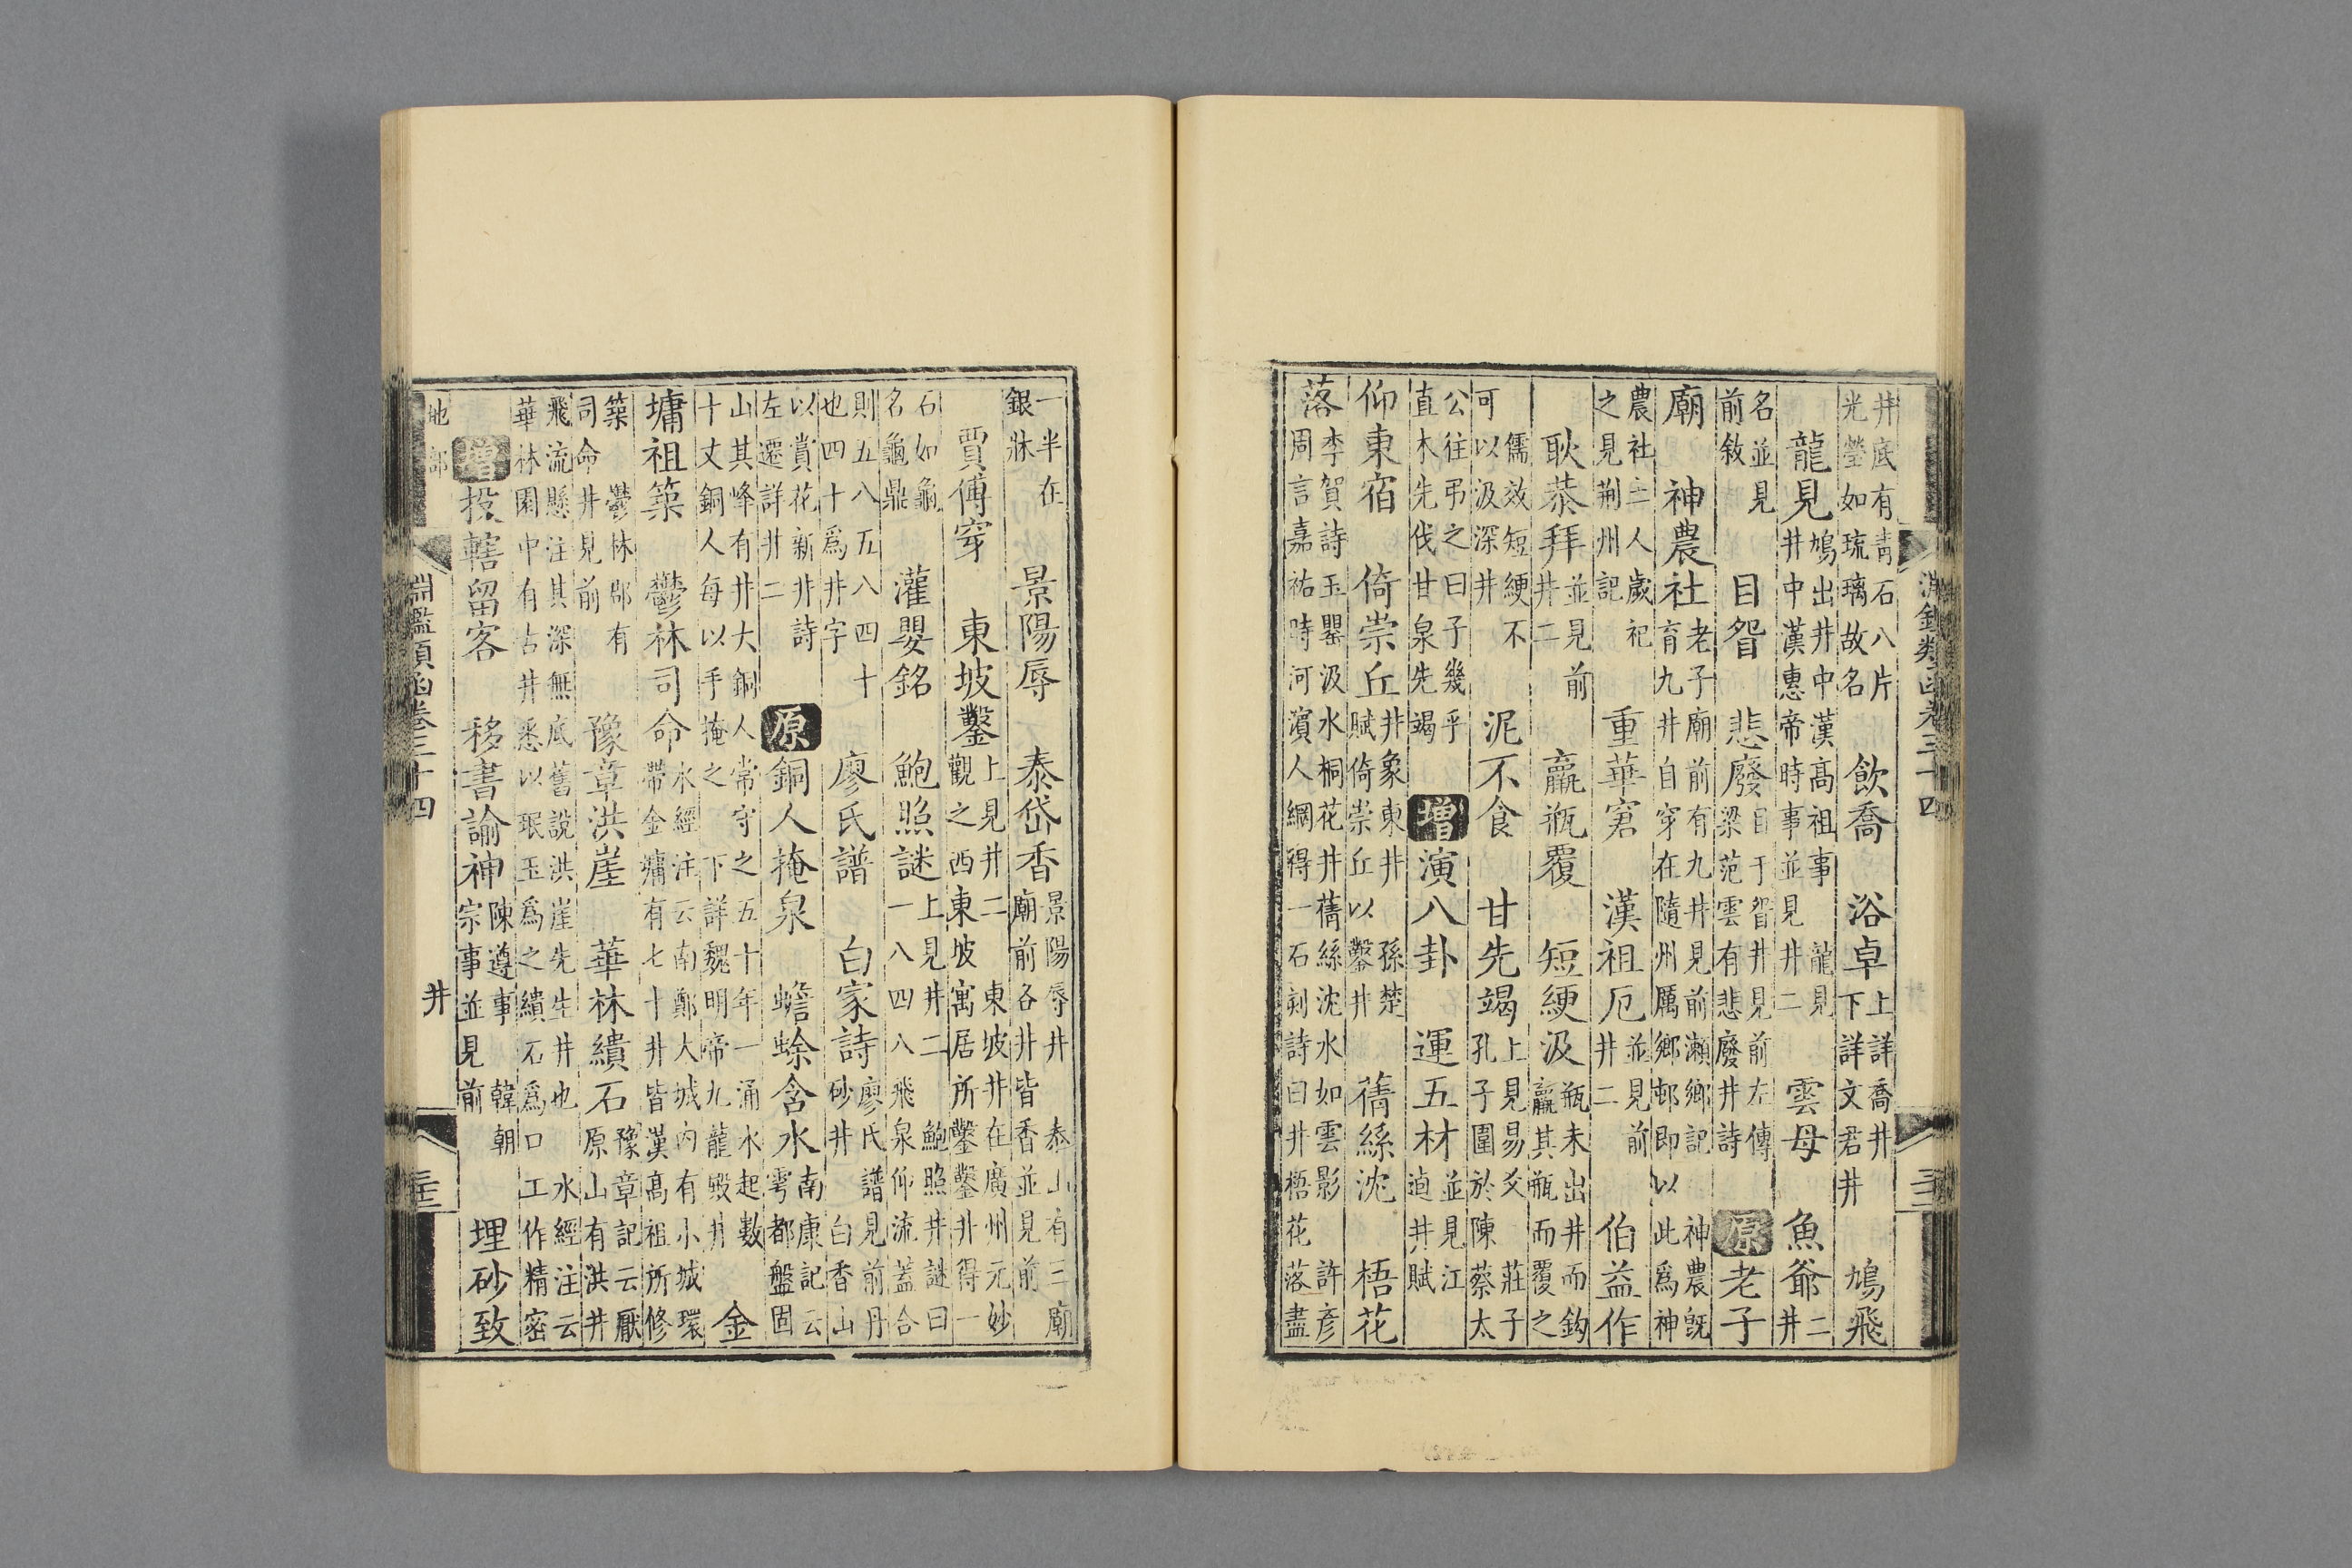 井底有青石八片光瑩如琉璃故名 飲喬 浴卓 上詳喬井下詳文君井 鳩飛
龍見 鳩出井中漢高祖事 龍見井中漢惠帝時事並見井二 雲母 魚爺 二井
名並見前敘 目眢 悲廢 目于眢井見前左傳梁范雲有悲廢井詩 原 老子
廟 神農社 老子廟前有九井見前瀨鄉記 神農既育九井自穿在隨州厲鄉邨即以此爲神
農社土人歲祀之見荆州記 重華窘 漢祖厄 並見前井二 伯益作
耿恭拜 並見前井二 羸瓶覆 短綆汲 瓶未出井而鈎羸其瓶而覆之
儒效短綆不可以汲深井 泥不食 甘先竭 上見易爻 莊子孔子圍於陳蔡太
公往弔之曰子幾乎直木先伐甘泉先竭 增 演八卦 運五材 並見江逌井賦
仰東宿 倚崇丘 井象東井 孫楚井賦倚崇丘以鑿井 蒨絲沈 梧花
落 李賀詩玉罌汲水桐花井蒨絲沈水如雲影 許彥周言嘉祐時河濵人網得一石刻詩曰井梧花落盡
淵鑑類函卷三十四
一半在銀牀 景陽辱 泰岱香 景陽辱井 泰山有三廟廟前各井皆香並見前
賈傅穿 東坡鑿 上見井二 東坡井在廣州元妙觀之西東坡寓居所鑿鑿井得一
石如龜名龜鼎 灌嬰銘 鮑照謎 上見井二 鮑照井謎曰一八四八飛泉仰流蓋合
則五八五八四十也四十爲井字 廖氏譜 白家詩 廖氏譜見前丹砂井 白香山
以賞花新井詩左遷詳井二 原 銅人掩泉 蟾蜍含水 南康記云雩都盤固
山其峰有井大銅人常守之五十年一涌水起數十丈銅人每以手掩之 下詳魏明帝九龍殿井 金
墉祖築 鬱林司命 水經注云南鄭大城内有小城環帶金墉有七十井皆漢高祖所修
築 鬱林郡有司命井見前 豫章洪崖 華林繢石 豫章記云厭原山有洪井
飛流懸注其深無底舊說洪崖先生井也 水經注云華林園中有古井悉以珉玉爲之繢石爲口工作精密
增 投轄留客 移書諭神 陳遵事 韓朝宗事並見前 埋砂致
地部 淵鑑類函卷三十四 井